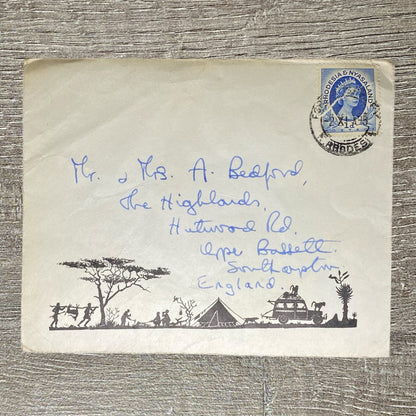 RHODESIA & NYASALAND
RHODESIA
Mr. & Mrs A. Bedford,
The Highlands,
Hutwood Rd.
Upr Bassett.
Southampton,
England.